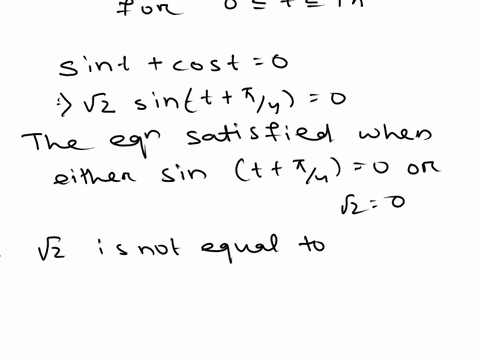 for 0 ≤ t ≤
sint + cost = 0
⇒ √2 sin(t + π/4) = 0
The eqn satisfied when
either sin (t + π/4) = 0 or
√2 = 0
√2 is not equal to